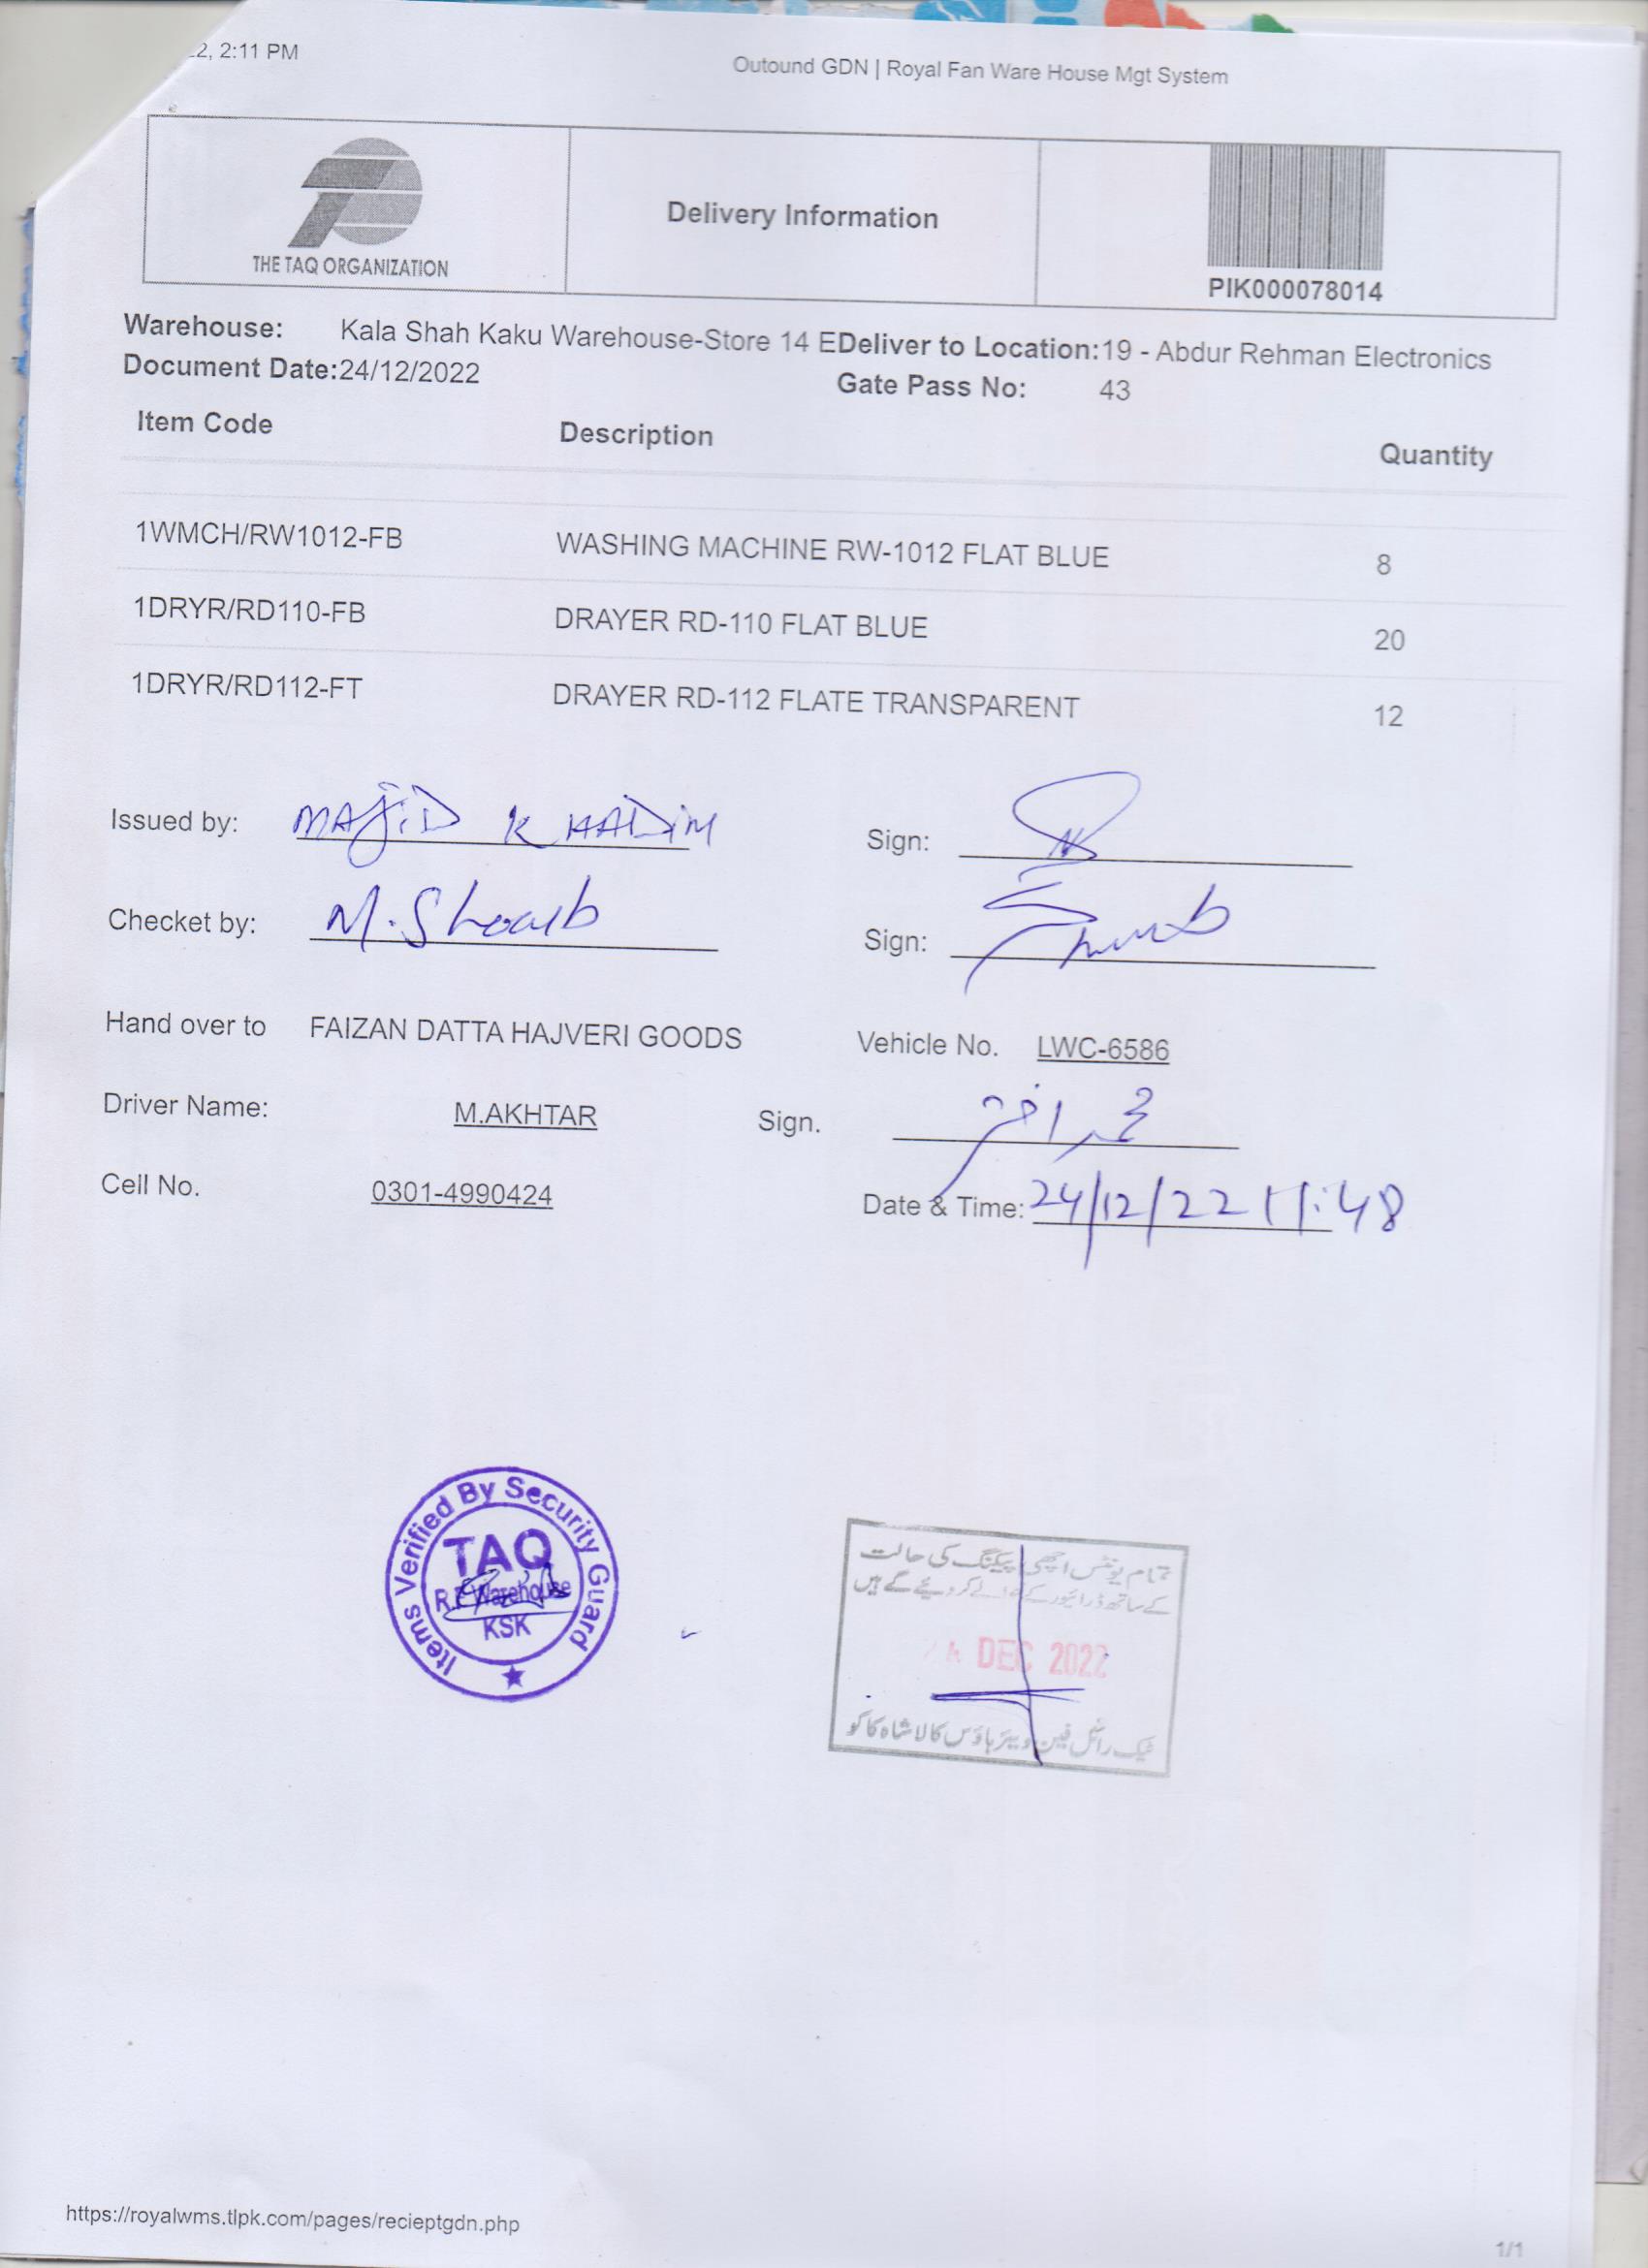 2, 2:11 PM
Outound GDN | Royal Fan Ware House Mgt System
THE TAQ ORGANIZATION
Delivery Information
PIK000078014
Warehouse: Kala Shah Kaku Warehouse-Store 14 E Deliver to Location: 19 - Abdur Rehman Electronics
Document Date: 24/12/2022 Gate Pass No: 43
Item Code Description Quantity
1WMCH/RW1012-FB WASHING MACHINE RW-1012 FLAT BLUE 8
1DRYR/RD110-FB DRAYER RD-110 FLAT BLUE 20
1DRYR/RD112-FT DRAYER RD-112 FLATE TRANSPARENT 12
Issued by: MAJiD KHADiM Sign:
Checket by: M.Shoaib Sign:
Hand over to FAIZAN DATTA HAJVERI GOODS Vehicle No. LWC-6586
Driver Name: M.AKHTAR Sign. محمد اختر
Cell No. 0301-4990424 Date & Time: 24/12/22 11:48
Items Verified By Security Guard
TAQ
R.F Warehouse
KSK
تمام یونٹس اچھی پیکنگ کی حالت
کے ساتھ ڈرائیور کے حوالے کر دیئے گے ہیں
24 DEC 2022
ٹیک رائل فین ویئر ہاؤس کالا شاہ کاکو
https://royalwms.tlpk.com/pages/recieptgdn.php
1/1